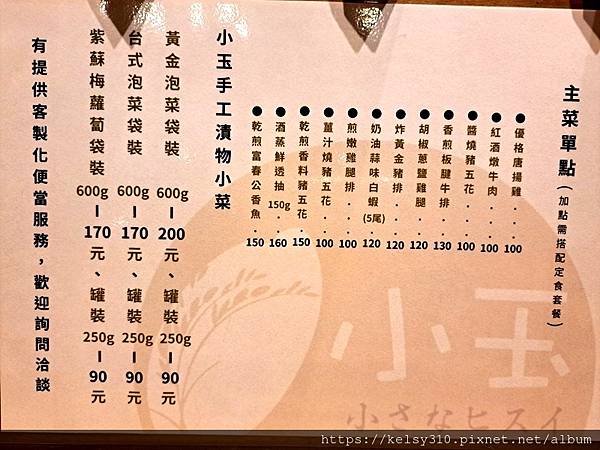 主菜單點(加點需搭配定食套餐)
●優格唐揚雞..100
●紅酒燉牛肉..100
●醬燒豬五花..100
●香煎板腱牛排.130
●胡椒蔥鹽雞腿.120
●炸黃金豬排..120
●奶油蒜味白蝦(5尾)120
●煎嫩雞腿排..100
●薑汁燒豬五花.100
●乾煎香料豬五花.150
●酒蒸鮮透抽150g.160
●乾煎富春公香魚.150
小玉手工漬物小菜
黃金泡菜袋裝 600g-200元、罐裝250g-90元
台式泡菜袋裝 600g-170元、罐裝250g-90元
紫蘇梅蘿蔔袋裝600g-170元、罐裝250g-90元
有提供客製化便當服務,歡迎詢問洽談
小玉
小さなヒスイ
https://kelsy310.pixnet.net/album